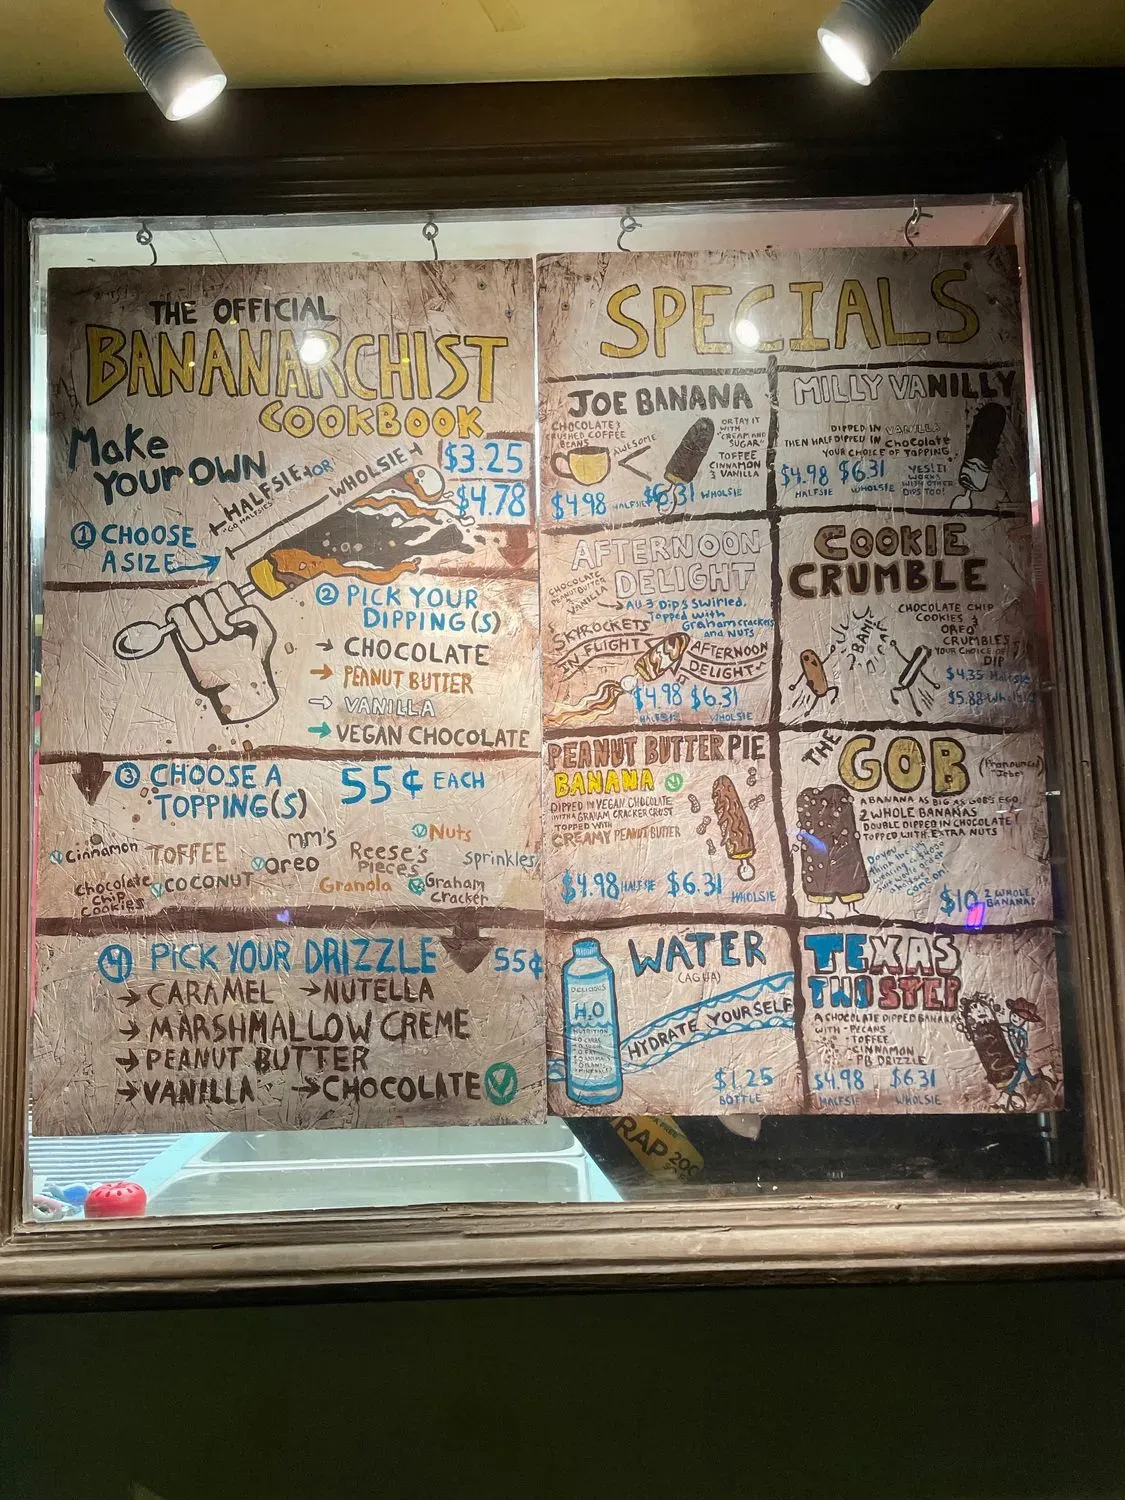 THE OFFICIAL
BANANARCHIST
COOKBOOK
Make
YOUR OWN
HALFSIE OR
"GO HALFSIES"
WHOLSIE
$3.25
$4.78
① CHOOSE
A SIZE
② PICK YOUR
DIPPING(S)
CHOCOLATE
PEANUT BUTTER
VANILLA
VEGAN CHOCOLATE
③ CHOOSE A
TOPPING(S)
55¢ EACH
Cinnamon
TOFFEE
mm's
oreo
Nuts
Reese's
Pieces
sprinkles
chocolate
chip
cookies
COCONUT
Granola
Graham
cracker
④ PICK YOUR DRIZZLE
55¢
CARAMEL
NUTELLA
MARSHMALLOW CREME
PEANUT BUTTER
VANILLA
CHOCOLATE
V
SPECIALS
JOE BANANA
CHOCOLATE &
CRUSHED COFFEE
BEANS
AWESOME
OR TRY IT
WITH
"CREAM AND
SUGAR"
TOFFEE
CINNAMON
& VANILLA
$4.98 HALFSIE $6.31 WHOLSIE
MILLY VANILLY
DIPPED IN VANILLA
THEN HALF DIPPED IN chocolate
YOUR CHOICE OF TOPPING
$4.98 $6.31
HALFSIE WHOLSIE
YES! IT
WORKS
WITH OTHER
DIPS TOO!
AFTERNOON
DELIGHT
CHOCOLATE
PEANUT BUTTER
VANILLA
All 3 Dips Swirled,
Topped with
Graham crackers
and NUTS
SKYROCKETS
IN FLIGHT
AFTERNOON
DELIGHT
$4.98 $6.31
HALFSIE WHOLSIE
COOKIE
CRUMBLE
BAM!
CHOCOLATE CHIP
COOKIES &
OREO
CRUMBLES
YOUR CHOICE OF
DIP
$4.35 Halfsie
$5.88 Wholsie
PEANUT BUTTER PIE
BANANA V
DIPPED IN VEGAN CHOCOLATE
WITH A GRAHAM CRACKER CRUST
TOPPED WITH
CREAMY PEANUT BUTTER
$4.98 HALFSIE $6.31
WHOLSIE
THE
GOB
(Pronounced
"Jobe")
A BANANA AS BIG AS GOB'S EGO
2 WHOLE BANANAS
DOUBLE DIPPED IN CHOCOLATE!
TOPPED WITH EXTRA NUTS
$10 2 WHOLE
BANANAS
WATER
(AGUA)
DELICIOUS
H₂O
NUTRITION
HYDRATE YOURSELF
$1.25
BOTTLE
TEXAS
TWO STEP
A CHOCOLATE DIPPED BANANA
WITH - PECANS
- TOFFEE
- CINNAMON
- PB DRIZZLE
$4.98 $6.31
HALFSIE WHOLSIE
WRAP 200